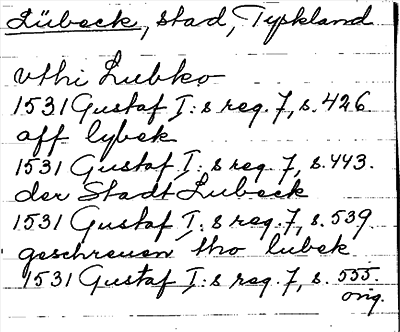 Lübeck, Stad, Tyskland
vthi Lubko
1531 Gustaf I:s reg. 7, s. 426.
aff lybek
1531 Gustaf I:s reg. 7, s. 443.
der Stadt Lubeck
1531 Gustaf I:s reg. 7, s. 539
geschreuen tho lubek
1531 Gustaf I:s reg. 7, s. 555.
orig.